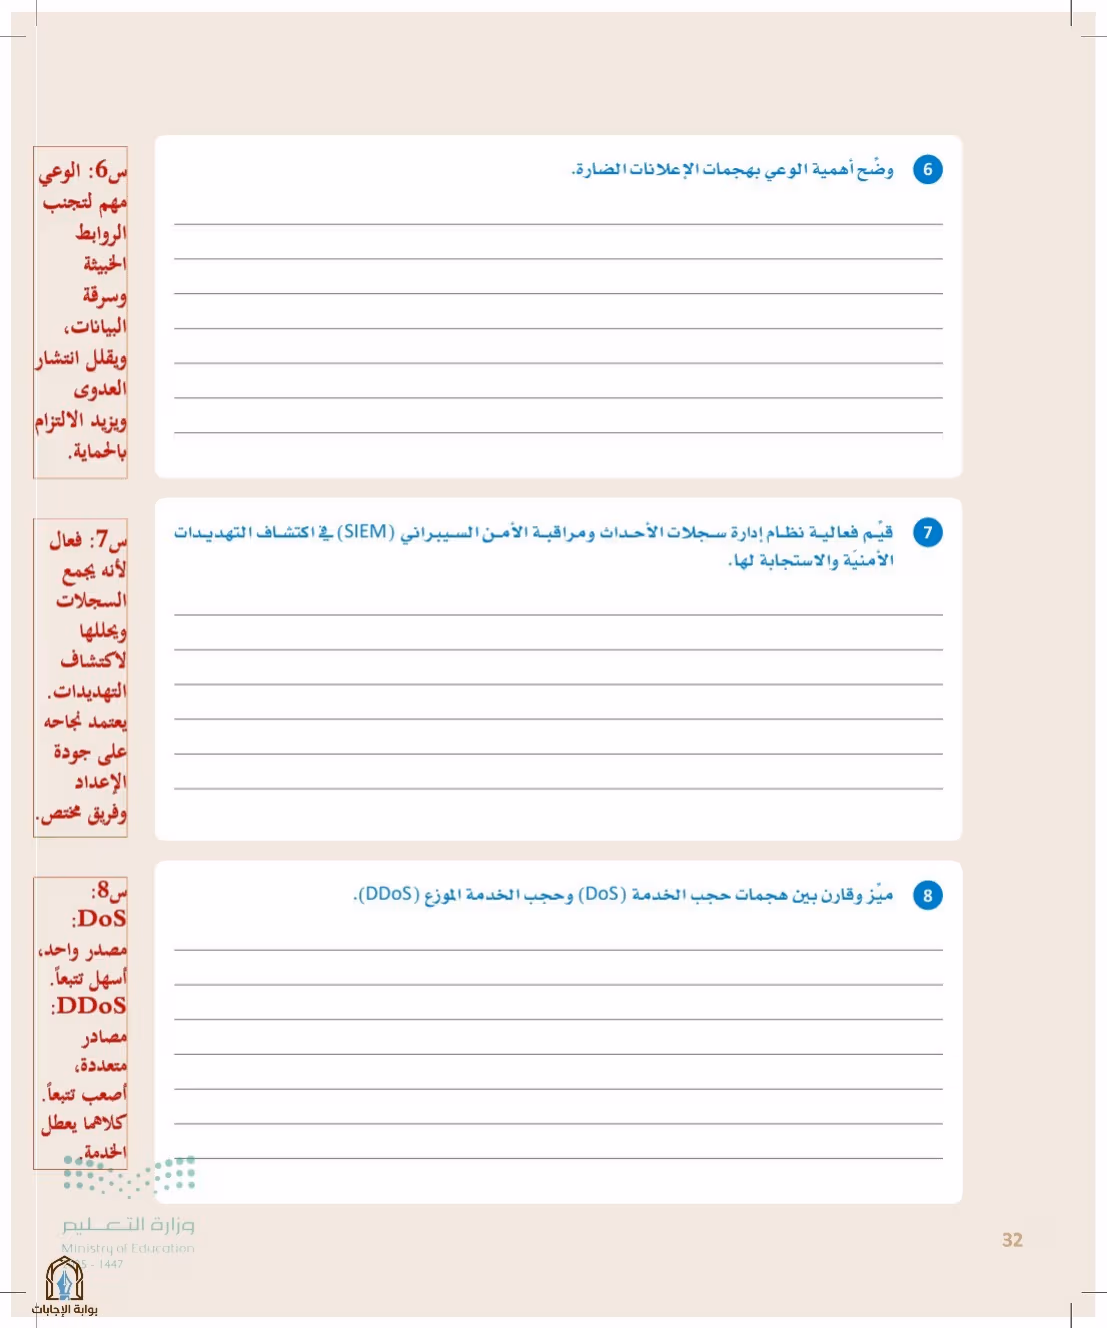 6 وضِّح أهمية الوعي بهجمات الإعلانات الضارة.
س6: الوعي
مهم لتجنب
الروابط
الخبيثة
وسرقة
البيانات،
ويقلل انتشار
العدوى
ويزيد الالتزام
بالحماية.
7 قيِّم فعالية نظام إدارة سجلات الأحداث ومراقبة الأمن السيبراني (SIEM) في اكتشاف التهديدات
الأمنيّة والاستجابة لها.
س7: فعال
لأنه يجمع
السجلات
ويحللها
لاكتشاف
التهديدات.
يعتمد نجاحه
على جودة
الإعداد
وفريق مختص.
8 ميِّز وقارن بين هجمات حجب الخدمة (DoS) وحجب الخدمة الموزع (DDoS).
س8:
DoS:
مصدر واحد،
أسهل تتبعاً.
DDoS:
مصادر
متعددة،
أصعب تتبعاً.
كلاهما يعطل
الخدمة.
وزارة التعليم
Ministry of Education
5 - 1447
32
بوابة الإجابات